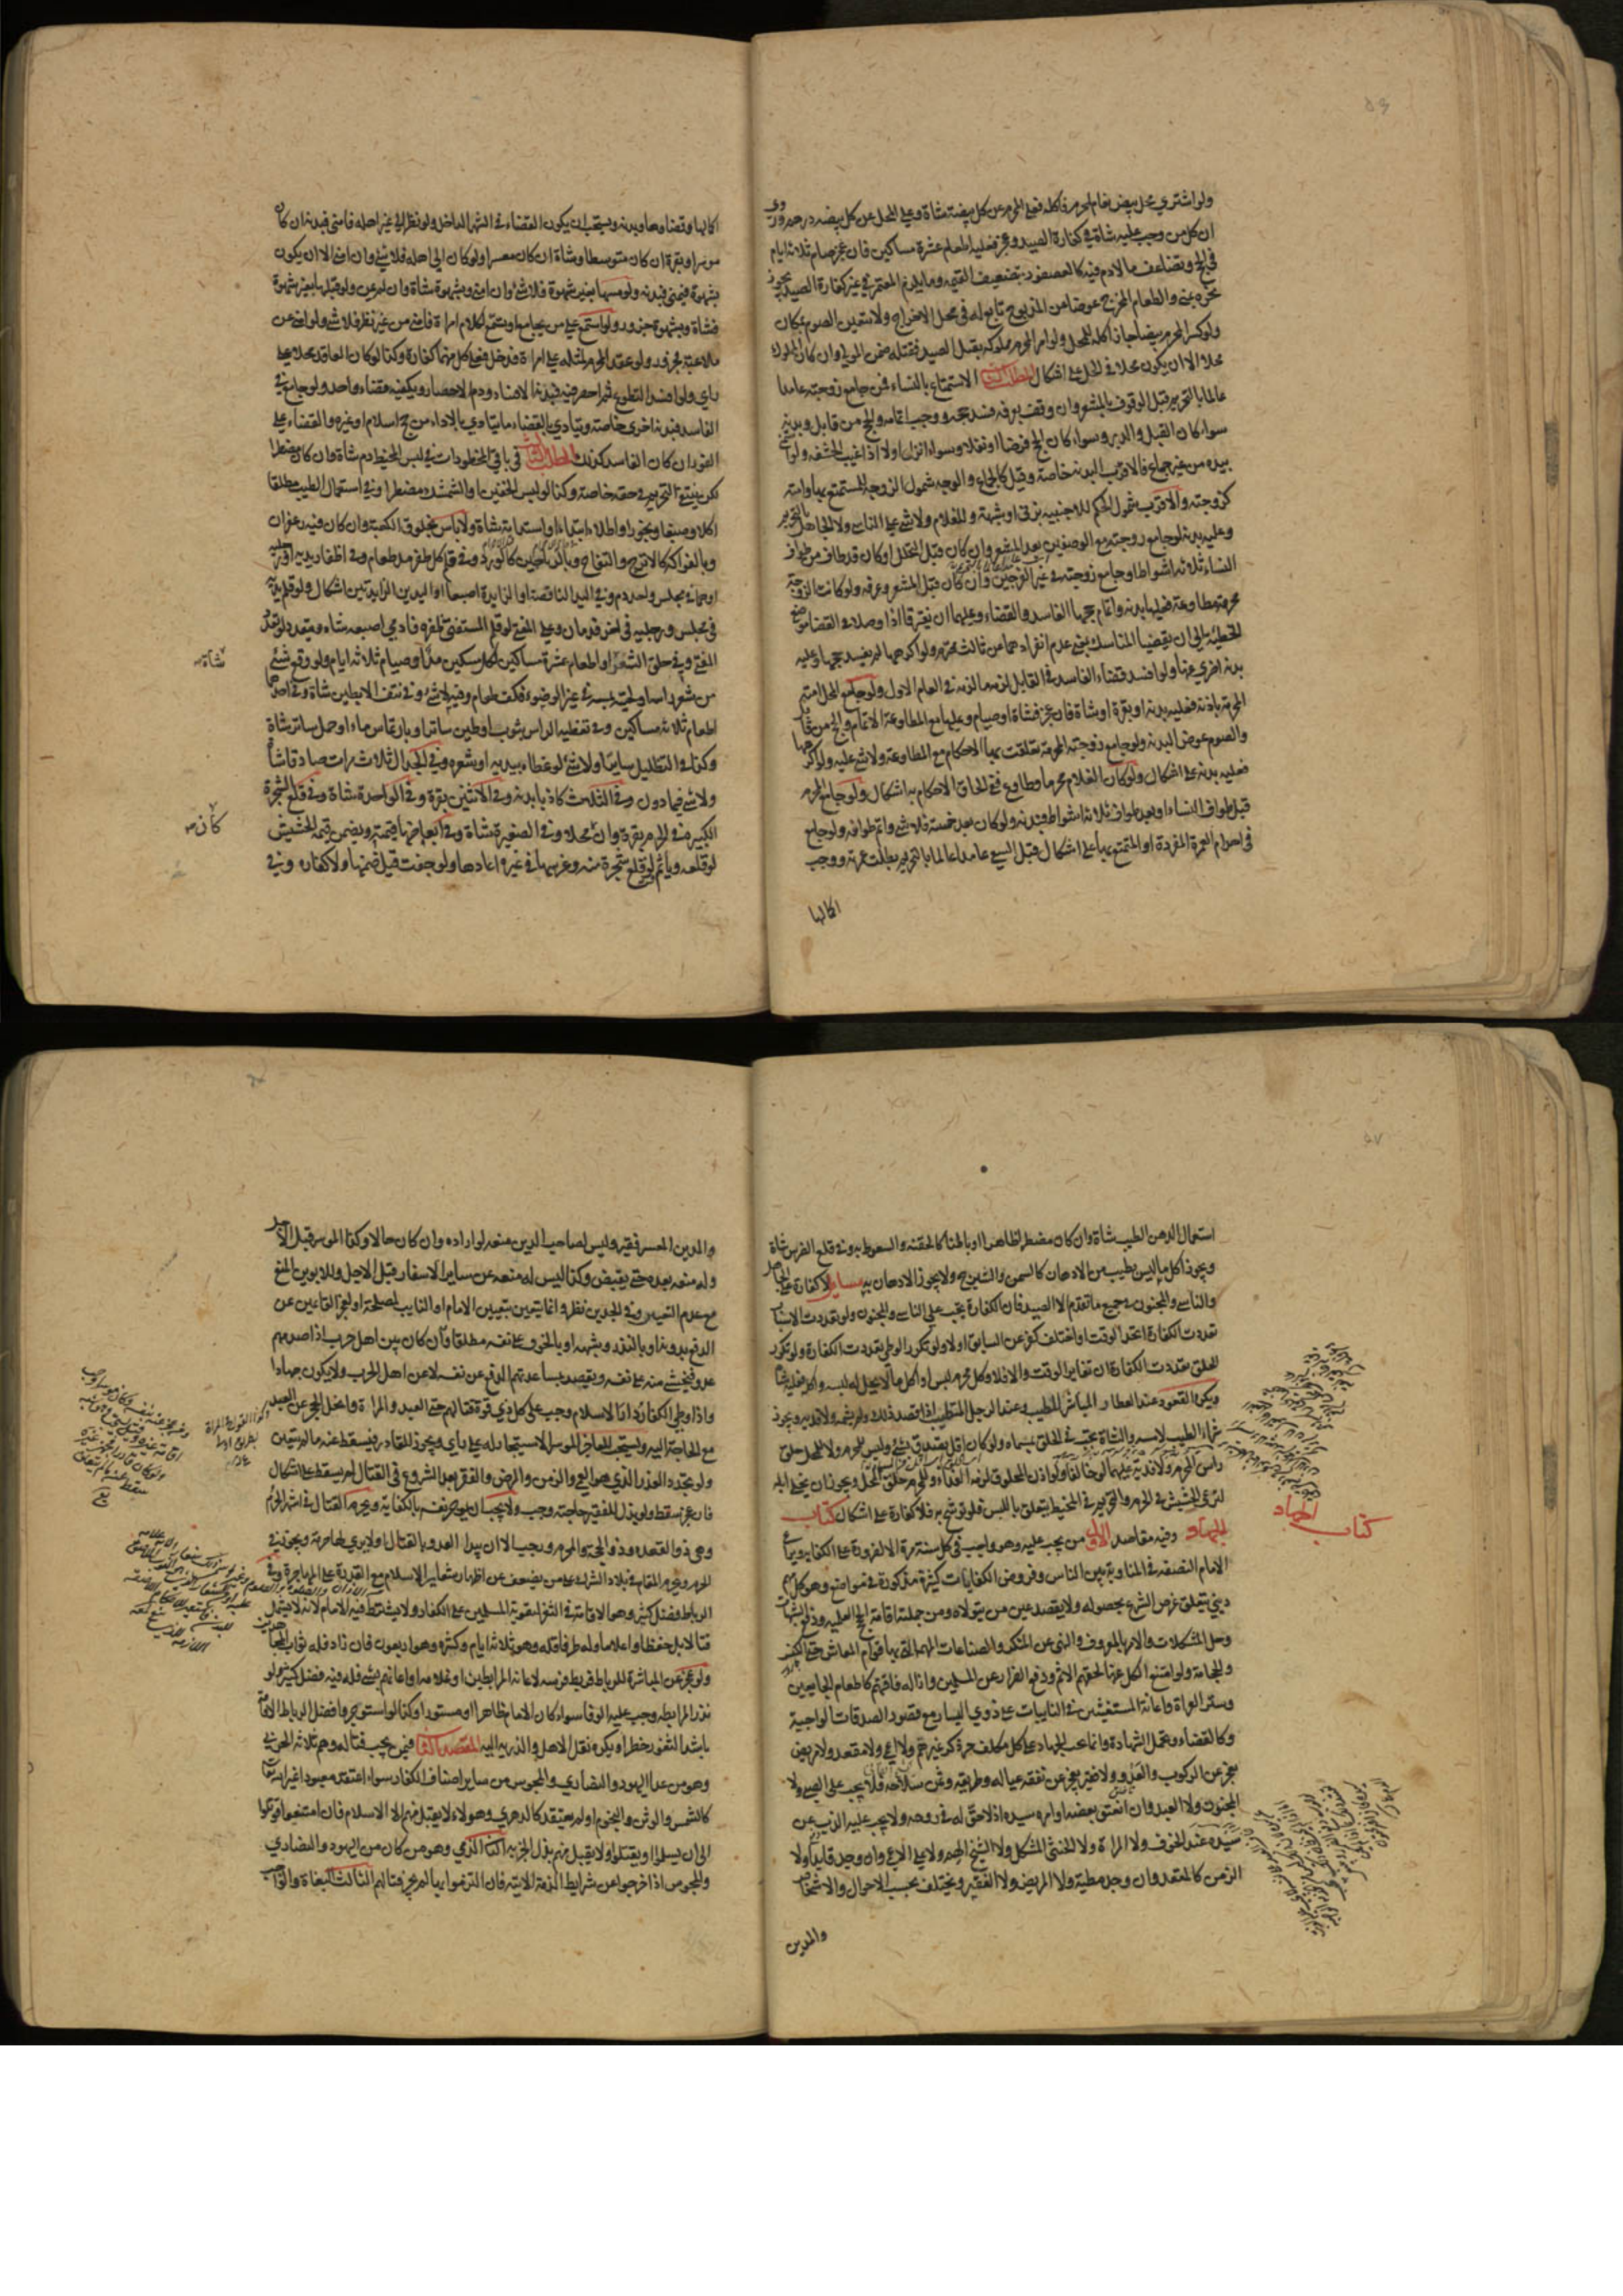 ولو اشتري محل بيض نعام لمحرم فاكله فعلى المحرم عن كل بيضة شاة وعلى المحل عن كل بيضه درهم
ان كل من وجب عليه شاة في كفارة الصيد وعجز فعليه اطعام عشرة مساكين فان عجز صام ثلاثة ايام
في الحج وتضاعف ما لا دم فيه كالعصفور بتضعيف القيمه وما يلزم المعتمر في غير كفارة الصيد يجوز
نحره بمنى والطعام المخرج عوضا عن المذبوح تابع له في محل الاخراج ولا يتعين الصوم بمكان
ولو كسر المحرم بيضا جاز اكله للمحل ولو امر المحرم مملوكه بقتل الصيد فقتله ضمن المولى وان كان المملوك
محلا الا ان يكون محلا في الحل على اشكال المطلب الثاني الاستمتاع بالنساء فمن جامع زوجته عامدا
عالما بالتحريم قبل الوقوف بالمشعر وان وقف بعرفه فسد حجه ووجب اتمامه والحج من قابل وبدنة
سواء كان القبل والدبر وسواء كان الحج فرضا او نفلا وسواء انزل او لا اذا غيب الحشفه ولو استمنى
بيده من غير جماع فالاقرب البدنه خاصة وقيل كالجماع والوجه شمول الزوجة المستمتع بها وامته
كزوجته والاقرب شمول الحكم للاجنبيه بزنى او شبهة وللغلام ولا شي على الناسي ولا الجاهل بالتحريم
وعليه بدنه لو جامع زوجته مع الوصفين بعد المشعر وان كان قبل التحلل او كان قد طاف من طواف
النساء ثلاثة اشواط او جامع زوجته في غير الفرجين وان كان قبل المشعر وعرفه ولو كانت الزوجة
محرمة مطاوعة فعليها بدنه واتمام حجها الفاسد والقضاء وعليهما ان يفترقا اذا وصلا في القضاء موضع
الخطيئة الى ان يقضيا المناسك بمعنى عدم انفرادهما عن ثالث محترم ولو اكرهها لم يفسد حجها وعليه
بدنة اخرى عنها ولو افسد قضاء الفاسد في القابل لزمه ما لزمه في العام الاول ولو جامع المحل امته
المحرمة باذنه فعليه بدنه او بقرة او شاة فان عجز فشاة او صيام وعليها مع المطاوعة الاتمام والحج من قابل
والصوم عوض البدنه ولو جامع زوجته المحرمة تعلقت بها الاحكام مع المطاوعة ولا شي عليه ولو اكرهها
فعليه بدنة على اشكال ولو كان الغلام محرما وطاوع ففي الحاق الاحكام به اشكال ولو جامع المحرم
قبل طواف النساء او بعد طواف ثلاثة اشواط فبدنه ولو كان بعد خمسة فلا شي واتم طوافه ولو جامع
في احرام العمرة المفردة او المتمتع بها على اشكال قبل السعي عامدا عالما بالتحريم بطلت عمرته ووجب
اكمالها
اكمالها وقضاوها وبدنه ويستحب ان يكون القضاء في الشهر الداخل ولو نظر الى غير اهله فامنى فبدنة ان كان
موسرا وبقرة ان كان متوسطا وشاة ان كان معسرا ولو كان الى اهله فلا شي وان امنى الا ان يكون
بشهوة فيمنى فبدنه ولو مسها بغير شهوة فلا شي وان امنى وبشهوة شاة وان لم يمن ولو قبلها بغير شهوة
فشاة وبشهوة جزور ولو استمع على من يجامع او تسمع لكلام امراة فامنى من غير نظر فلا شي ولو امنى عن
ملاعبة فجزور ولو عقد المحرم لمثله على امراة فدخل فعلى كل منهما كفارة وكذا لو كان العاقد محلا على
راى ولو افسد التطوع ثم احصر فيه فبدنة للافساد ودم للاحصار ويكفيه قضاء واحد ولو جامع في
الفاسد فبدنه اخرى خاصة ويتادى بالقضاء ما يتادى بالاداء من حج اسلام او غيره والقضاء على
الفور ان كان الفاسد كذلك المطلب الثالث في باقي المحظورات في لبس المخيط دم شاة وان كان مضطرا
لكن ينتفي التحريم في حقه خاصة وكذا لو لبس الخفين او الشمشك مضطرا وفي استعمال الطيب مطلقا
اكلا وصبغا وبخورا واطلاء ابتداء او استدامة شاة ولا باس بخلوق الكعبة وان كان فيه زعفران
وبالفواكه كالاترج والتفاح وبالرياحين كالورد وفي قلم كل ظفر مد طعام وفي اظفار يديه او رجليه
او هما في مجلس واحد دم وفي اليد الناقصة او الزايدة اصبعا او اليدين الزايدتين اشكال ولو قلم يديه
في مجلس ورجليه في اخر فدمان وعلى المفتى لو قلم المستفتى ظفره فادمى اصبعه شاه ويتعدد لو تعدد
المفتي وفي حلق الشعر او اطعام عشرة مساكين لكل مسكين مد او صيام ثلاثة ايام ولو وقع شي
شاة
من شعر راسه او لحيته بمسه في غير الوضوء فكف طعام وفيه لا شي وفي نتف الابطين شاة وفي احدهما
اطعام ثلاثة مساكين وفي تغطيه الراس بثوب او طين ساتر او بارتماس ماء او حمل ساتر شاة
وكذا في التظليل سايرا ولا شي لو غطاه بيديه او شعره وفي الجدال ثلاث مرات صادقا شاة
ولا شي فيما دون وفي الثلث كاذبا بدنه وفي الاثنين بقرة وفي الواحدة شاة وفي قلع الشجرة
الكبيرة في الحرم بقرة وان محلا وفي الصغيرة شاة وفي ابعاضها قيمته ويضمن قيمة الحشيش
كان
لو قلعه وياثم ولو قلع شجرة منه وغرسها في غيره اعادها ولو جفت قيل ضمنها ولا كفارة وفي
استعمال الدهن الطيب شاة وان كان مضطرا ظاهرا او باطنا كالحقنه والسعوط به وفي قلع الضرس شاة
ويجوز اكل ما ليس بطيب من الادهان كالسمن والشيرج ولا يجوز الادهان به مسايل لا كفارة على الجاهل
والناسي والمجنون في جميع ما تقدم الا الصيد فان الكفارة تجب على الناسي والمجنون ولو تعددت الاسباب
تعددت الكفارة اتحد الوقت او اختلف كفر عن السابق او لا ولو تكرر الوطي تعددت الكفارة ولو تكرر
الحلق تعددت الكفارة ان تغاير الوقت والا فلا وكل محرم لبس او اكل ما لا يحل له لبسه واكله فعليه شاة
ويكره القعود عند العطار المباشر للطيب وعند الرجل المتطيب اذا قصد ذلك ولم يشمه ولا فدية ويجوز
شراء الطيب لا مسه والشاة تجب في الحلق بمسماه ولو كان اقل تصدق بشي وليس للمحرم ولا للمحل حلق
راس المحرم ولا فدية عليهما لو خالفا ولو اذن المحلوق لزمه الفداء وللمحرم حلق المحل ويجوز ان يخلى ابله
لترعى الحشيش في الحرم والتحريم في المخيط يتعلق باللبس فلو توشح به فلا كفارة على اشكال كتاب
كتاب الجهاد
الجهاد وفيه مقاصد الاول من يجب عليه وهو واجب في كل سنة مرة الا لضرورة على الكفايه ويراعى
الامام النصفة في المناوبة بين الناس وفروض الكفايات كثيرة مذكورة في مواضع وهو كل مهم
ديني يتعلق غرض الشرع بحصوله ولا يقصد عين من يتولاه ومن جملته اقامة الحجج العلميه ودفع الشبهات
وحل المشكلات والامر بالمعروف والنهى عن المنكر والصناعات المهمه التي بها قوام المعاش حتى الكنس
والحجامة ولو امتنع الكل عنها لحقهم الاثم ودفع الضرار عن المسلمين وازاله فاقتهم كاطعام الجايعين
وستر العراة واعانة المستغيثين في النايبات على ذوي اليسار مع قصور الصدقات الواجبة
وكالقضاء وتحمل الشهادة وانما يجب الجهاد على كل مكلف حر ذكر غير هم ولا اعمى ولا مقعد ولا مريض
يعجز عن الركوب والعدو ولا فقير يعجز عن نفقه عياله وطريقه وثمن سلاحه فلا يجب على الصبي ولا
المجنون ولا العبد وان انعتق بعضه او امره سيده اذ لا حق له في روحه ولا يجب عليه الذب عن
سيده عند الخوف ولا المراة ولا الخنثى المشكل ولا الشيخ الهم ولا على الاعمى وان وجد قايدا ولا
الزمن كالمقعد وان وجد مطية ولا المريض ولا الفقير ويختلف بحسب الاحوال والاشخاص
والمدين
والمدين المعسر فقير وليس لصاحب الدين منعه لو اراده وان كان حالا وكذا الموسر قبل الاجل
وله منعه بعده حتى يقبض وكذا ليس له منعه عن ساير الاسفار قبل الاجل وللابوين المنع
مع عدم التعيين وفي الجدين نظر وانما يتعين بتعيين الامام او النايب لمصلحة او لعجز القائمين عن
الدفع بدونه او بالنذر وشبهه او بالخوف على نفسه مطلقا وان كان بين اهل حرب اذا صدمهم
عدو فيخشى منه على نفسه ويقصد بمساعدتهم الدفع عن نفسه لا عن اهل الحرب ولا يكون جهادا
واذا وطي الكفار دار الاسلام وجب على كل ذي قوة قتالهم حتى العبد والمراة وانحل الحجر عن العبد
مع الحاجة اليه ويستحب للعاجز الموسر الاستيجار له على راي ويجوز للقادر فيسقط عنه ما لم يتعين
ولو تجدد العذر الذي هو العمى والزمن والمرض والفقر بعد الشروع في القتال لم يسقط على اشكال
فان عجز سقط ولو بذل للفقير حاجته وجب ولا يجب ان يوجر نفسه بالكفاية ويحرم القتال في اشهر الحرم
وهى ذو القعده وذو الحجة والمحرم ورجب الا ان يبدا العدو بالقتال او لا يرى لها حرمة ويجوز في
الحرم ويحرم المقام في بلاد الشرك على من يضعف عن اظهار شعاير الاسلام مع القدرة على المهاجرة وفي
الرباط فضل كثير وهو الاقامة في الثغر لتقوية المسلمين على الكفار ولا يشترط فيه الامام لانه لا يشتمل
قتالا بل حفظا واعلاما وله طرفا قلة وهو ثلاثة ايام وكثرة وهو اربعون فان زاد فله ثواب المجاهدين
ولو عجز عن المباشرة للرباط فربط فرسه لاعانة المرابطين او غلامه او اعانهم بشي فله فيه فضل كثير ولو
نذر المرابطه وجب عليه الوفا سواء كان الامام ظاهرا او مستورا وكذا لو استوجر وافضل الرباط الاقامة
باشد الثغور خطرا ويكره نقل الاهل والذرية اليه المقصد الثاني فيمن يجب قتاله وهم ثلاثة الحربي
وهو من عدا اليهود والنصارى والمجوس من ساير اصناف الكفار سواء اعتقد معبودا غير الله تعالى
كالشمس والوثن والنجوم او لم يعتقد كالدهري وهولاء لا يقبل منهم الا الاسلام فان امتنعوا قوتلوا
الى ان يسلموا او يقتلوا ولا يقبل منهم بذل الجزيه الثاني الذمي وهو من كان من اليهود والنصارى
والمجوس اذا خرجوا عن شرايط الذمة الاتية فان التزموا بها لم يجز قتالهم الثالث البغاة والواجب